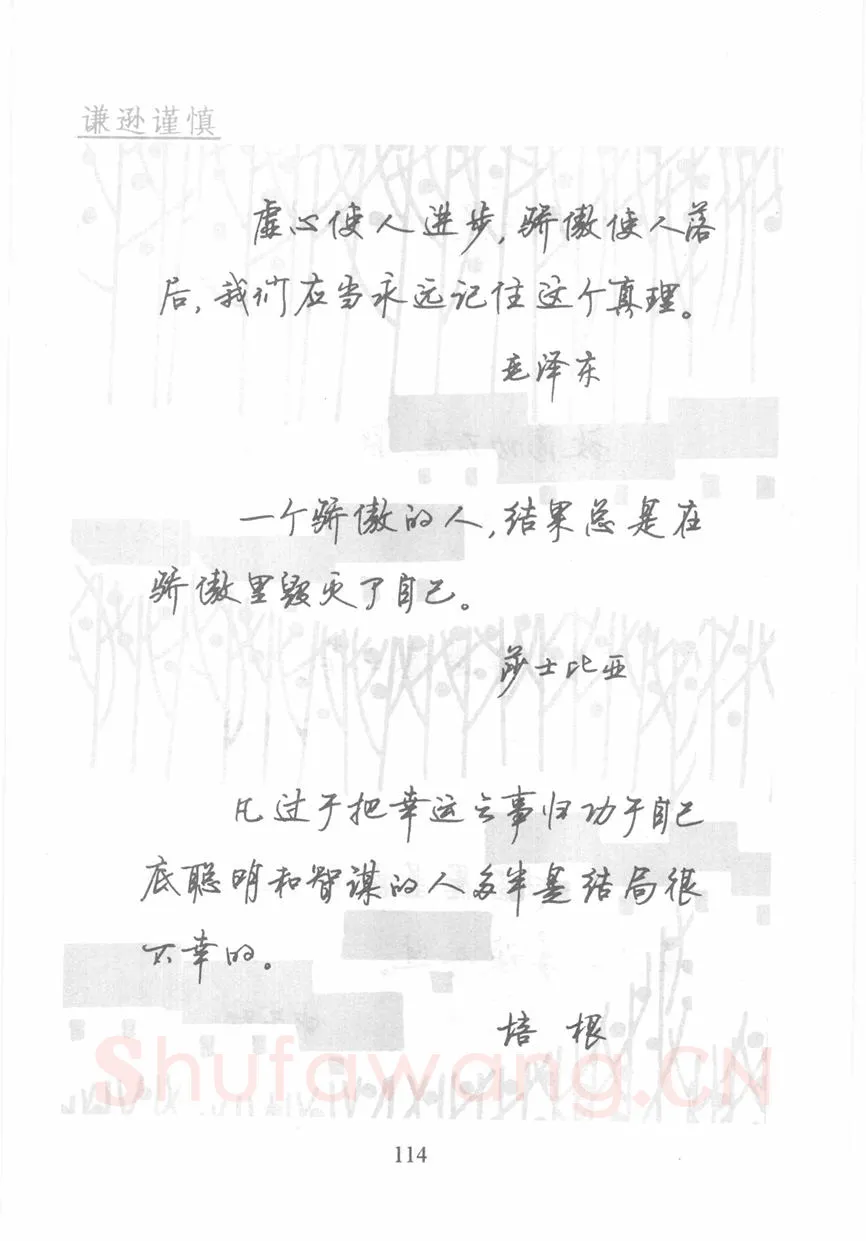 谦逊谨慎
虚心使人进步,骄傲使人落
后,我们应当永远记住这个真理。
毛泽东
一个骄傲的人,结果总是在
骄傲里毁灭了自己。
莎士比亚
凡过于把幸运之事归功于自己
底聪明和智谋的人多半是结局很
不幸的。
培 根
Shufawang.CN
114